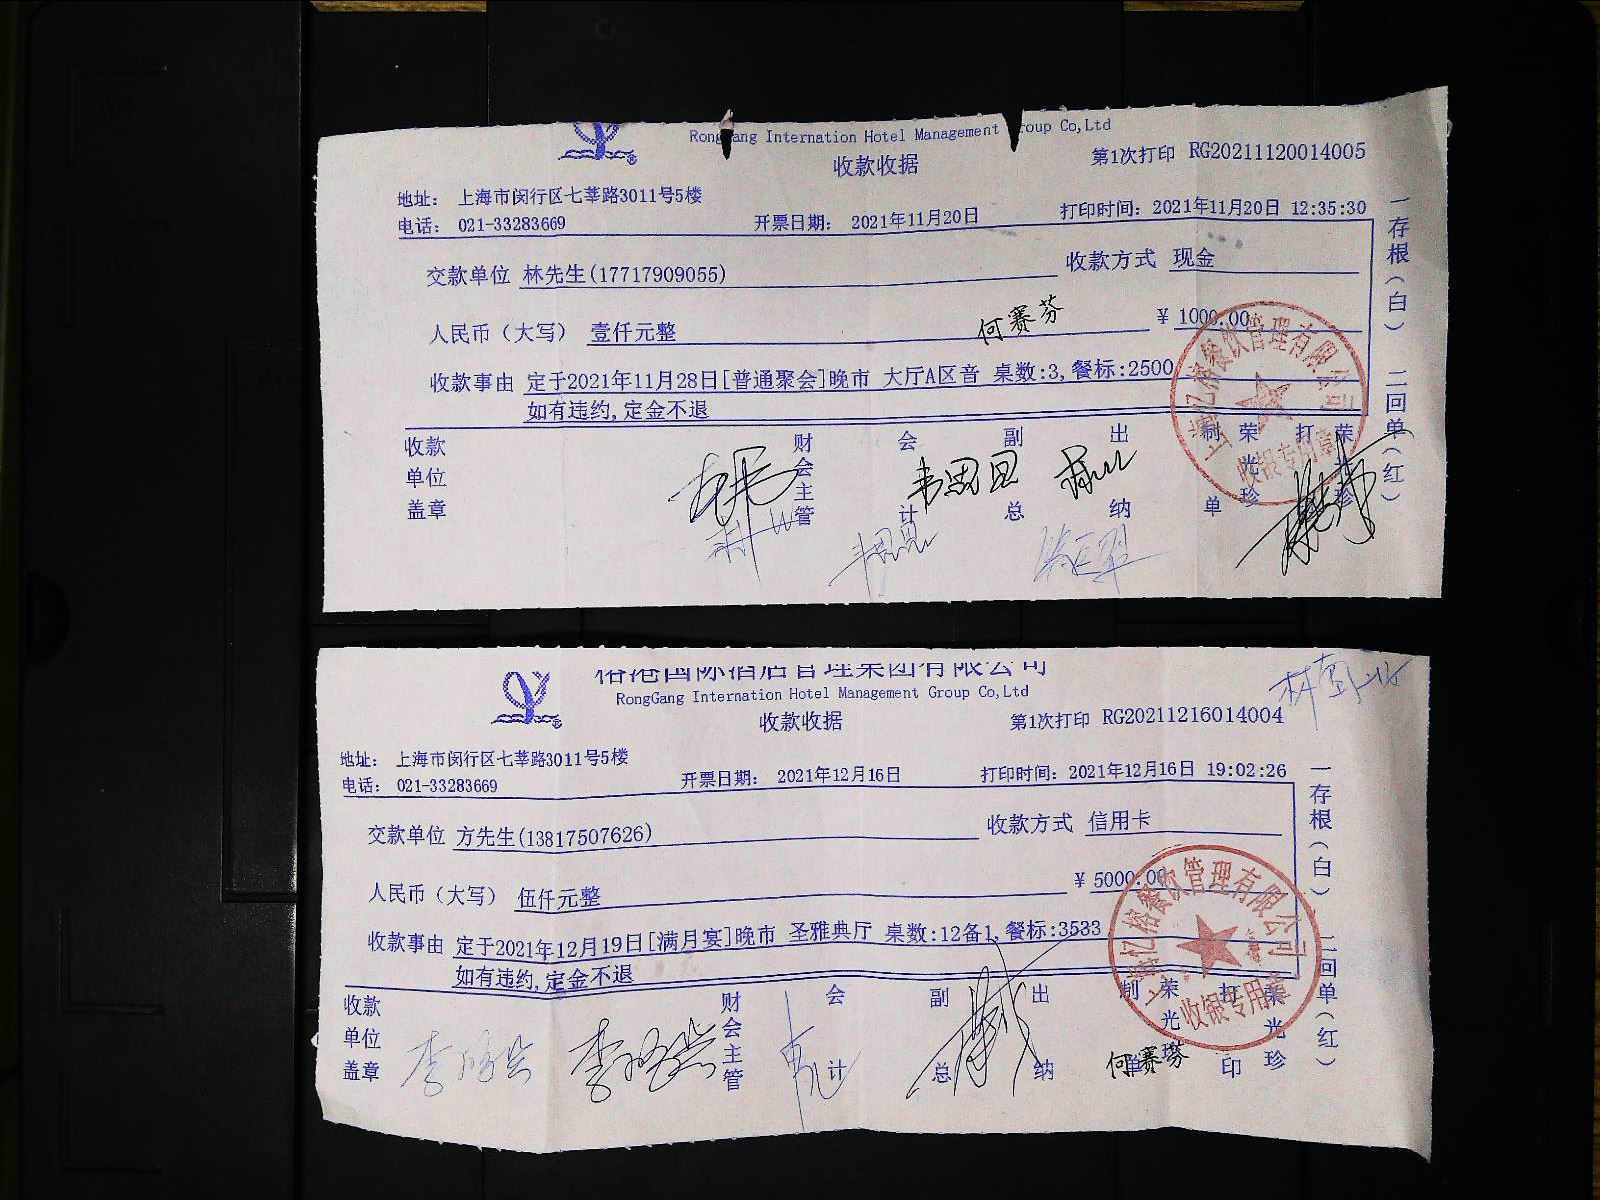 RongGang Internation Hotel Management Group Co,Ltd
收款收据
第1次打印 RG20211120014005
地址： 上海市闵行区七莘路3011号5楼
电话： 021-33283669 开票日期： 2021年11月20日 打印时间：2021年11月20日 12:35:30
交款单位 林先生(17717909055) 收款方式 现金
人民币（大写） 壹仟元整 何赛芬 ¥ 1000.00
收款事由 定于2021年11月28日[普通聚会]晚市 大厅A区音 桌数:3,餐标:2500
如有违约,定金不退
收款单位盖章 财会主管 会计 副总 出纳 制单 荣光珍 打印 荣光珍
一存根（白） 二回单（红）
上海忆榕餐饮管理有限公司
收银专用章
榕港国际酒店管理集团有限公司
RongGang Internation Hotel Management Group Co,Ltd
收款收据
第1次打印 RG20211216014004
地址： 上海市闵行区七莘路3011号5楼
电话： 021-33283669 开票日期： 2021年12月16日 打印时间：2021年12月16日 19:02:26
交款单位 方先生(13817507626) 收款方式 信用卡
人民币（大写） 伍仟元整 ¥ 5000.00
收款事由 定于2021年12月19日[满月宴]晚市 圣雅典厅 桌数:12备1,餐标:3533
如有违约,定金不退
收款单位盖章 财会主管 会计 副总 出纳 制单 荣光珍 打印 荣光珍
何赛芬
一存根（白） 二回单（红）
上海忆榕餐饮管理有限公司
收银专用章